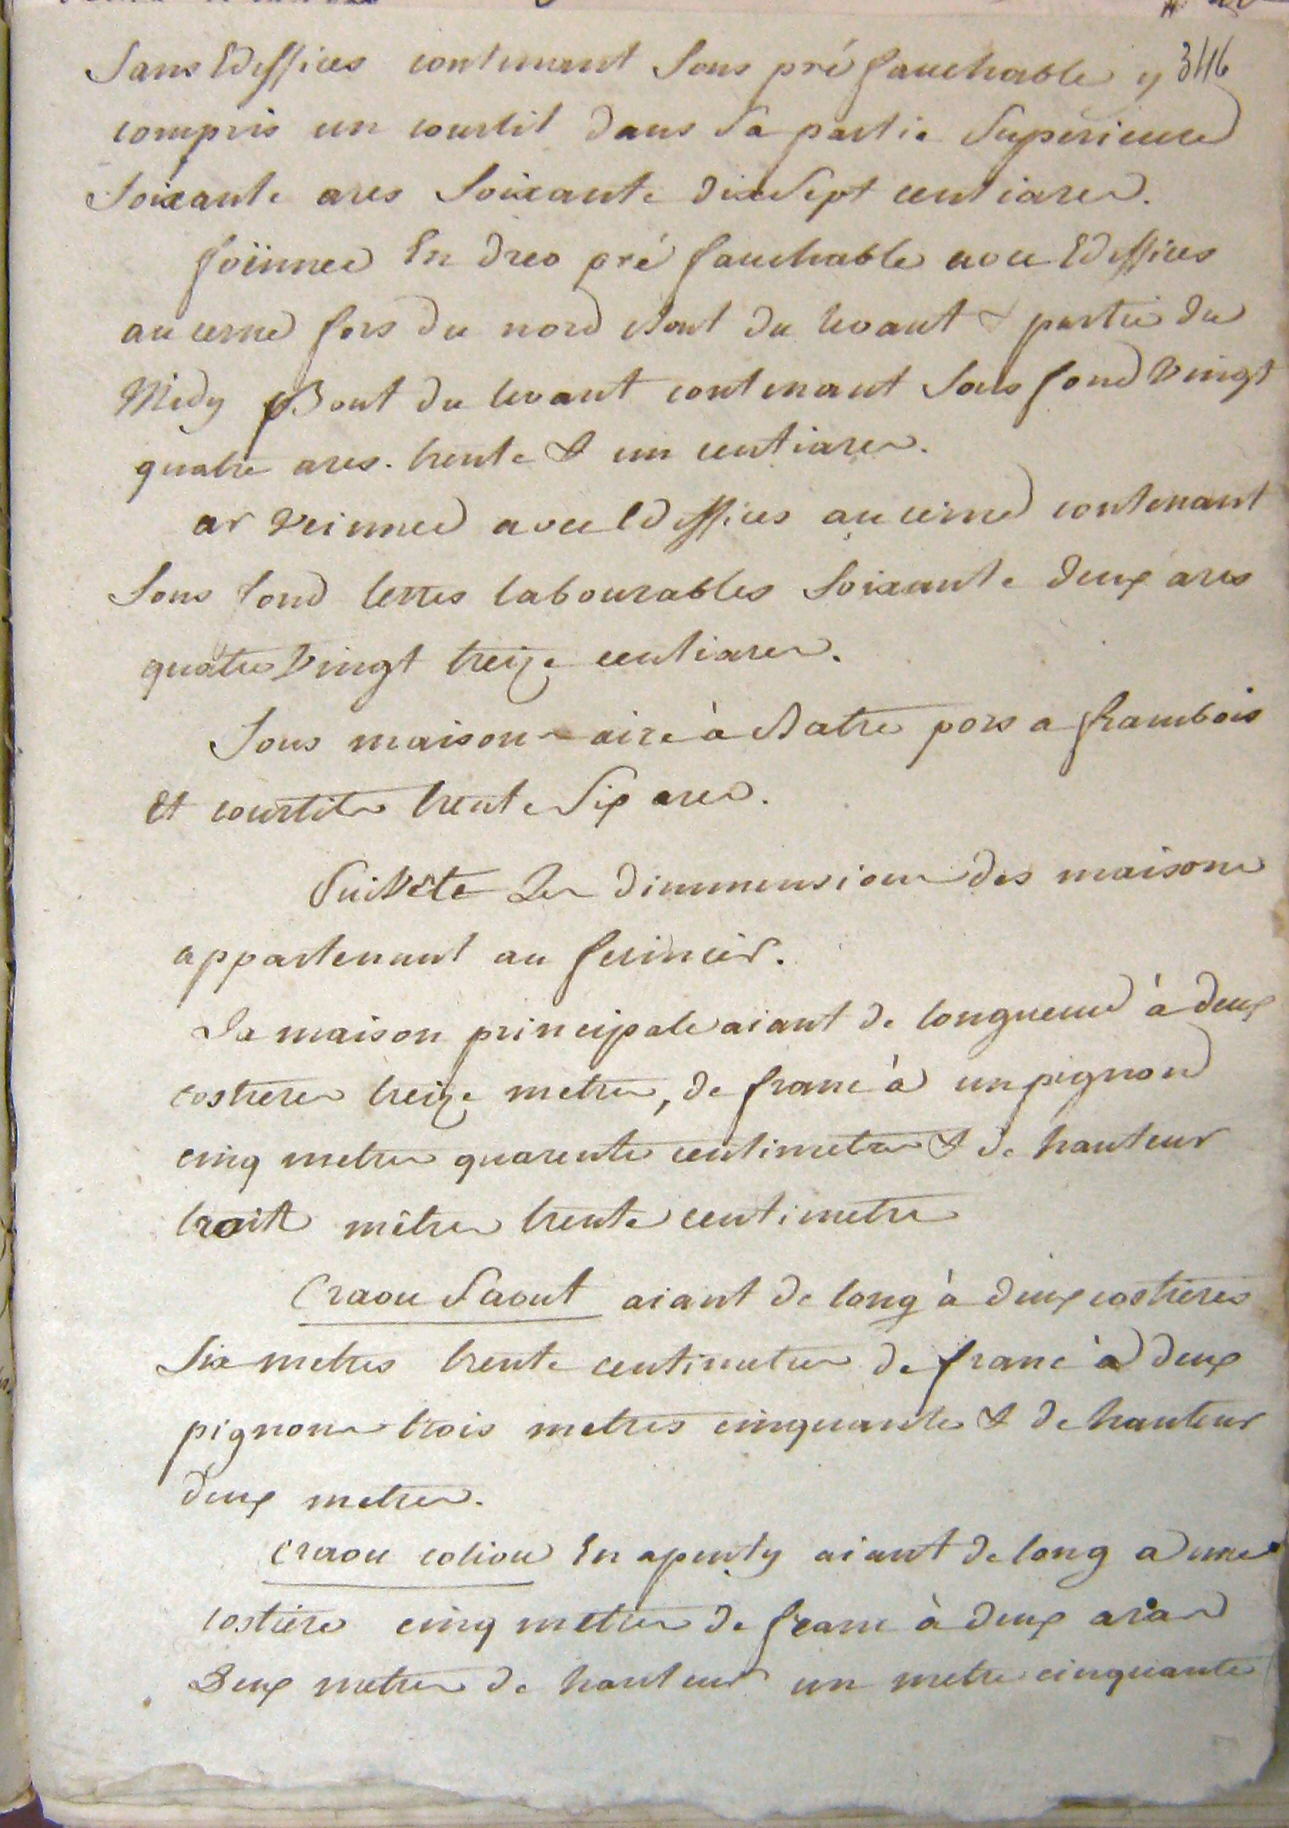 346
Sans Ediffices contenant Sous pré fauchable y
compris un courtil dans Sa partie Superieure
Soixante ares Soixante dix Sept centiares.
foënnec En dreo pré fauchable avec Ediffices
au cerne fors du nord Bout du levant & partie du
Midy Bout du levant contenant Sous fond vingt
quatre ares. trente & un centiares.
ar veinnec avec Ediffices au cerne contenant
Sous fond terres labourables Soixante deux ares
quatre Vingt treize centiares.
Sous maison aire à Batre pors a frambois
Et courtils trente Six ares.
Suivent Les dimmensions des maisons
appartenant au
La maison principale aiant de longueur à deux
costieres treize metres, de franc à un pignon
cinq metres quarente centimetres & de hauteur
trois mêtres trente centimetres
Craou Saout aiant de long à deux costieres
Six metres trente centimetres de franc à deux
pignons trois metres cinquante & de hauteur
deux metres.
craou coliou En apenty aiant de long a une
costiere cinq metres de franc à deux
Deux metres de hauteur un metre cinquante